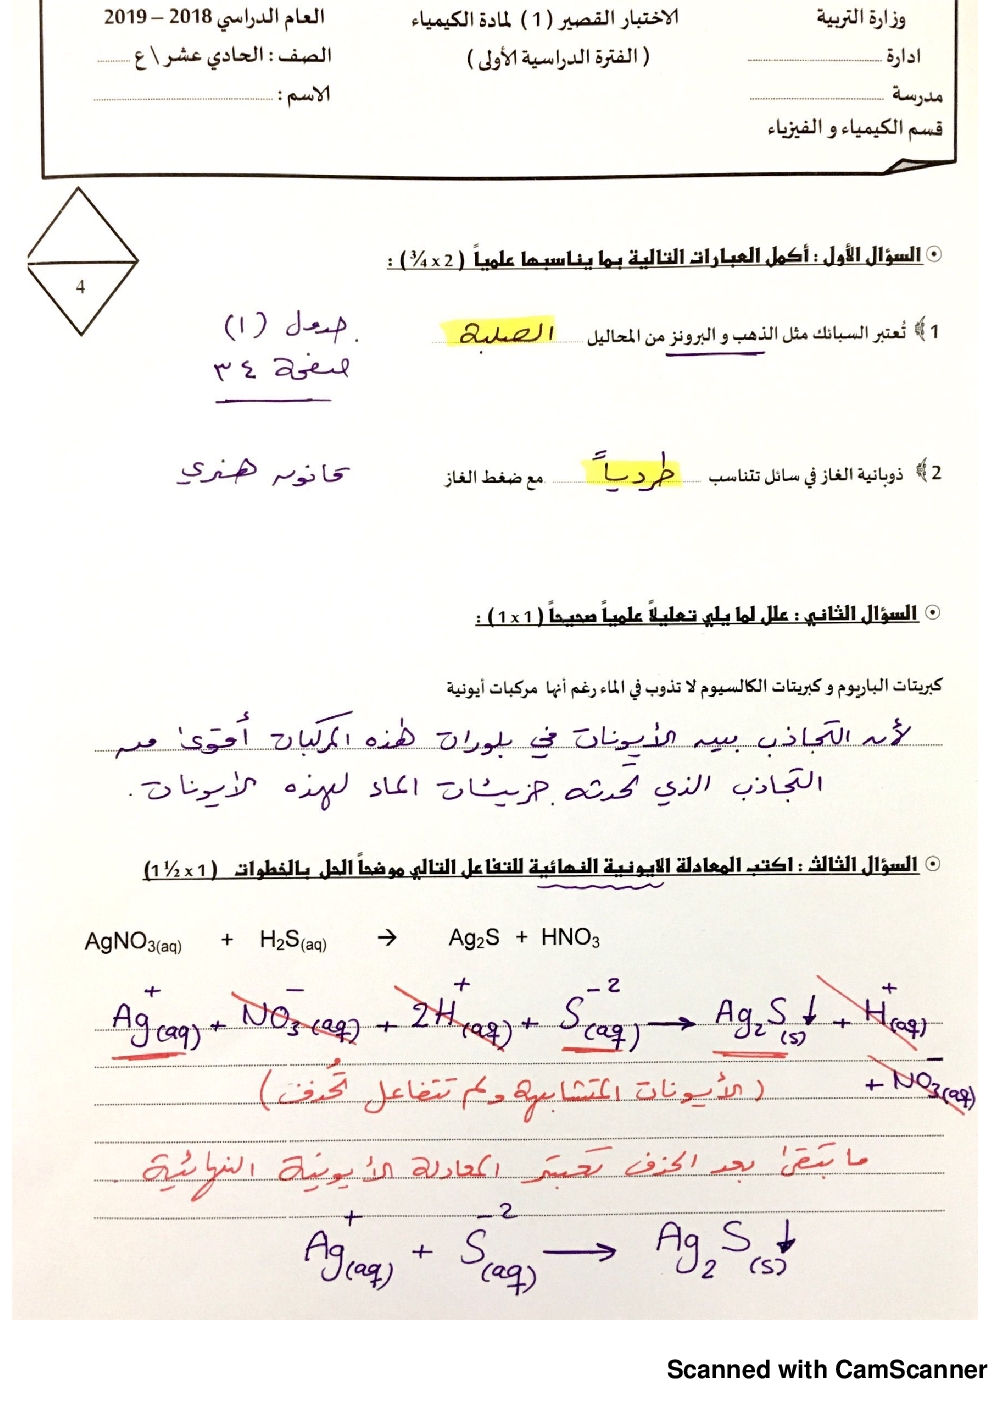 وزارة التربية
ادارة ........
مدرسة ........
قسم الكيمياء و الفيزياء
الاختبار القصير (1) لمادة الكيمياء
(الفترة الدراسية الأولى)
العام الدراسي 2018 – 2019
الصف : الحادي عشر \ ع ........
الاسم : ........
4
⊙ السؤال الأول : أكمل العبارات التالية بما يناسبها علمياً (2 x ¾) :
1 تُعتبر السبائك مثل الذهب و البرونز من المحاليل الصلبة
جدول (١)
صفحة ٣٤
2 ذوبانية الغاز في سائل تتناسب طردياً مع ضغط الغاز
قانون هنري
⊙ السؤال الثاني : علل لما يلي تعليلاً علمياً صحيحاً (1 x 1) :
كبريتات الباريوم و كبريتات الكالسيوم لا تذوب في الماء رغم أنها مركبات أيونية
لأن التجاذب بين الأيونات في بلورات هذه المركبات أقوى من
التجاذب الذي تحدثه جزيئات الماء لهذه الأيونات .
⊙ السؤال الثالث : اكتب المعادلة الايونية النهائية للتفاعل التالي موضحاً الحل بالخطوات (1 x 1½)
AgNO₃(aq) + H₂S(aq) → Ag₂S + HNO₃
Ag⁺(aq) + NO₃⁻(aq) + 2H⁺(aq) + S⁻²(aq) → Ag₂S(s)↓ + H⁺(aq)
+ NO₃⁻(aq)
(الأيونات المتشابهة ولم تتفاعل تُحذف)
ما تبقى بعد الحذف تعتبر المعادلة الأيونية النهائية .
Ag⁺(aq) + S⁻²(aq) → Ag₂S(s)↓
Scanned with CamScanner